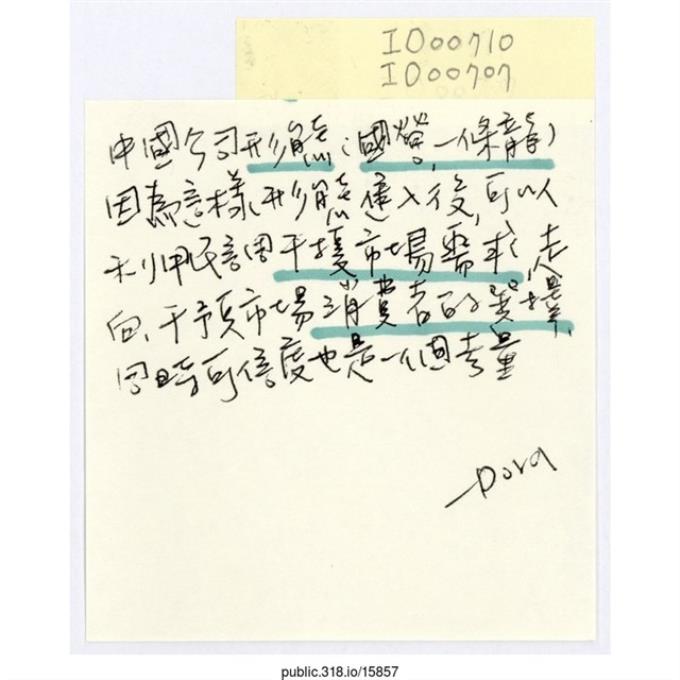 IO00710
IO00707
中國公司形態(國營,一條龍)
因為這樣形態進入後,可以
利用民調干擾市場需求走
向、干預市場消費者的選擇,
同時可信度也是一個考量
—Dora
public.318.io/15857